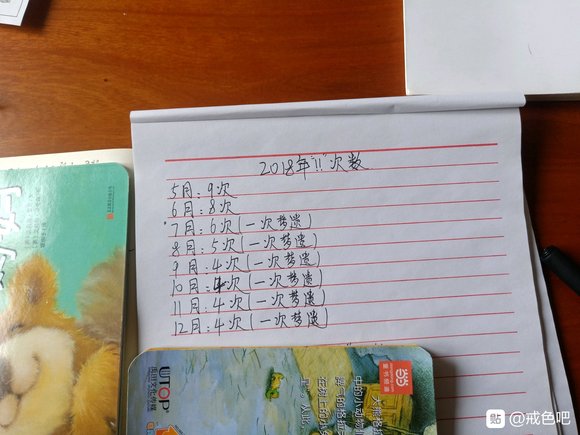 2018年"!!"次数
5月:9次
6月:8次
7月:6次(一次梦遗)
8月:5次(一次梦遗)
9月:4次(一次梦遗)
10月:4次(一次梦遗)
11月:4次(一次梦遗)
12月:4次(一次梦遗)
UTOP
贴 @戒色吧